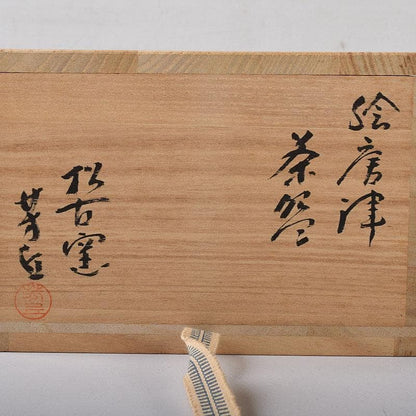 絵唐津
茶盌
松古窯
芳丘